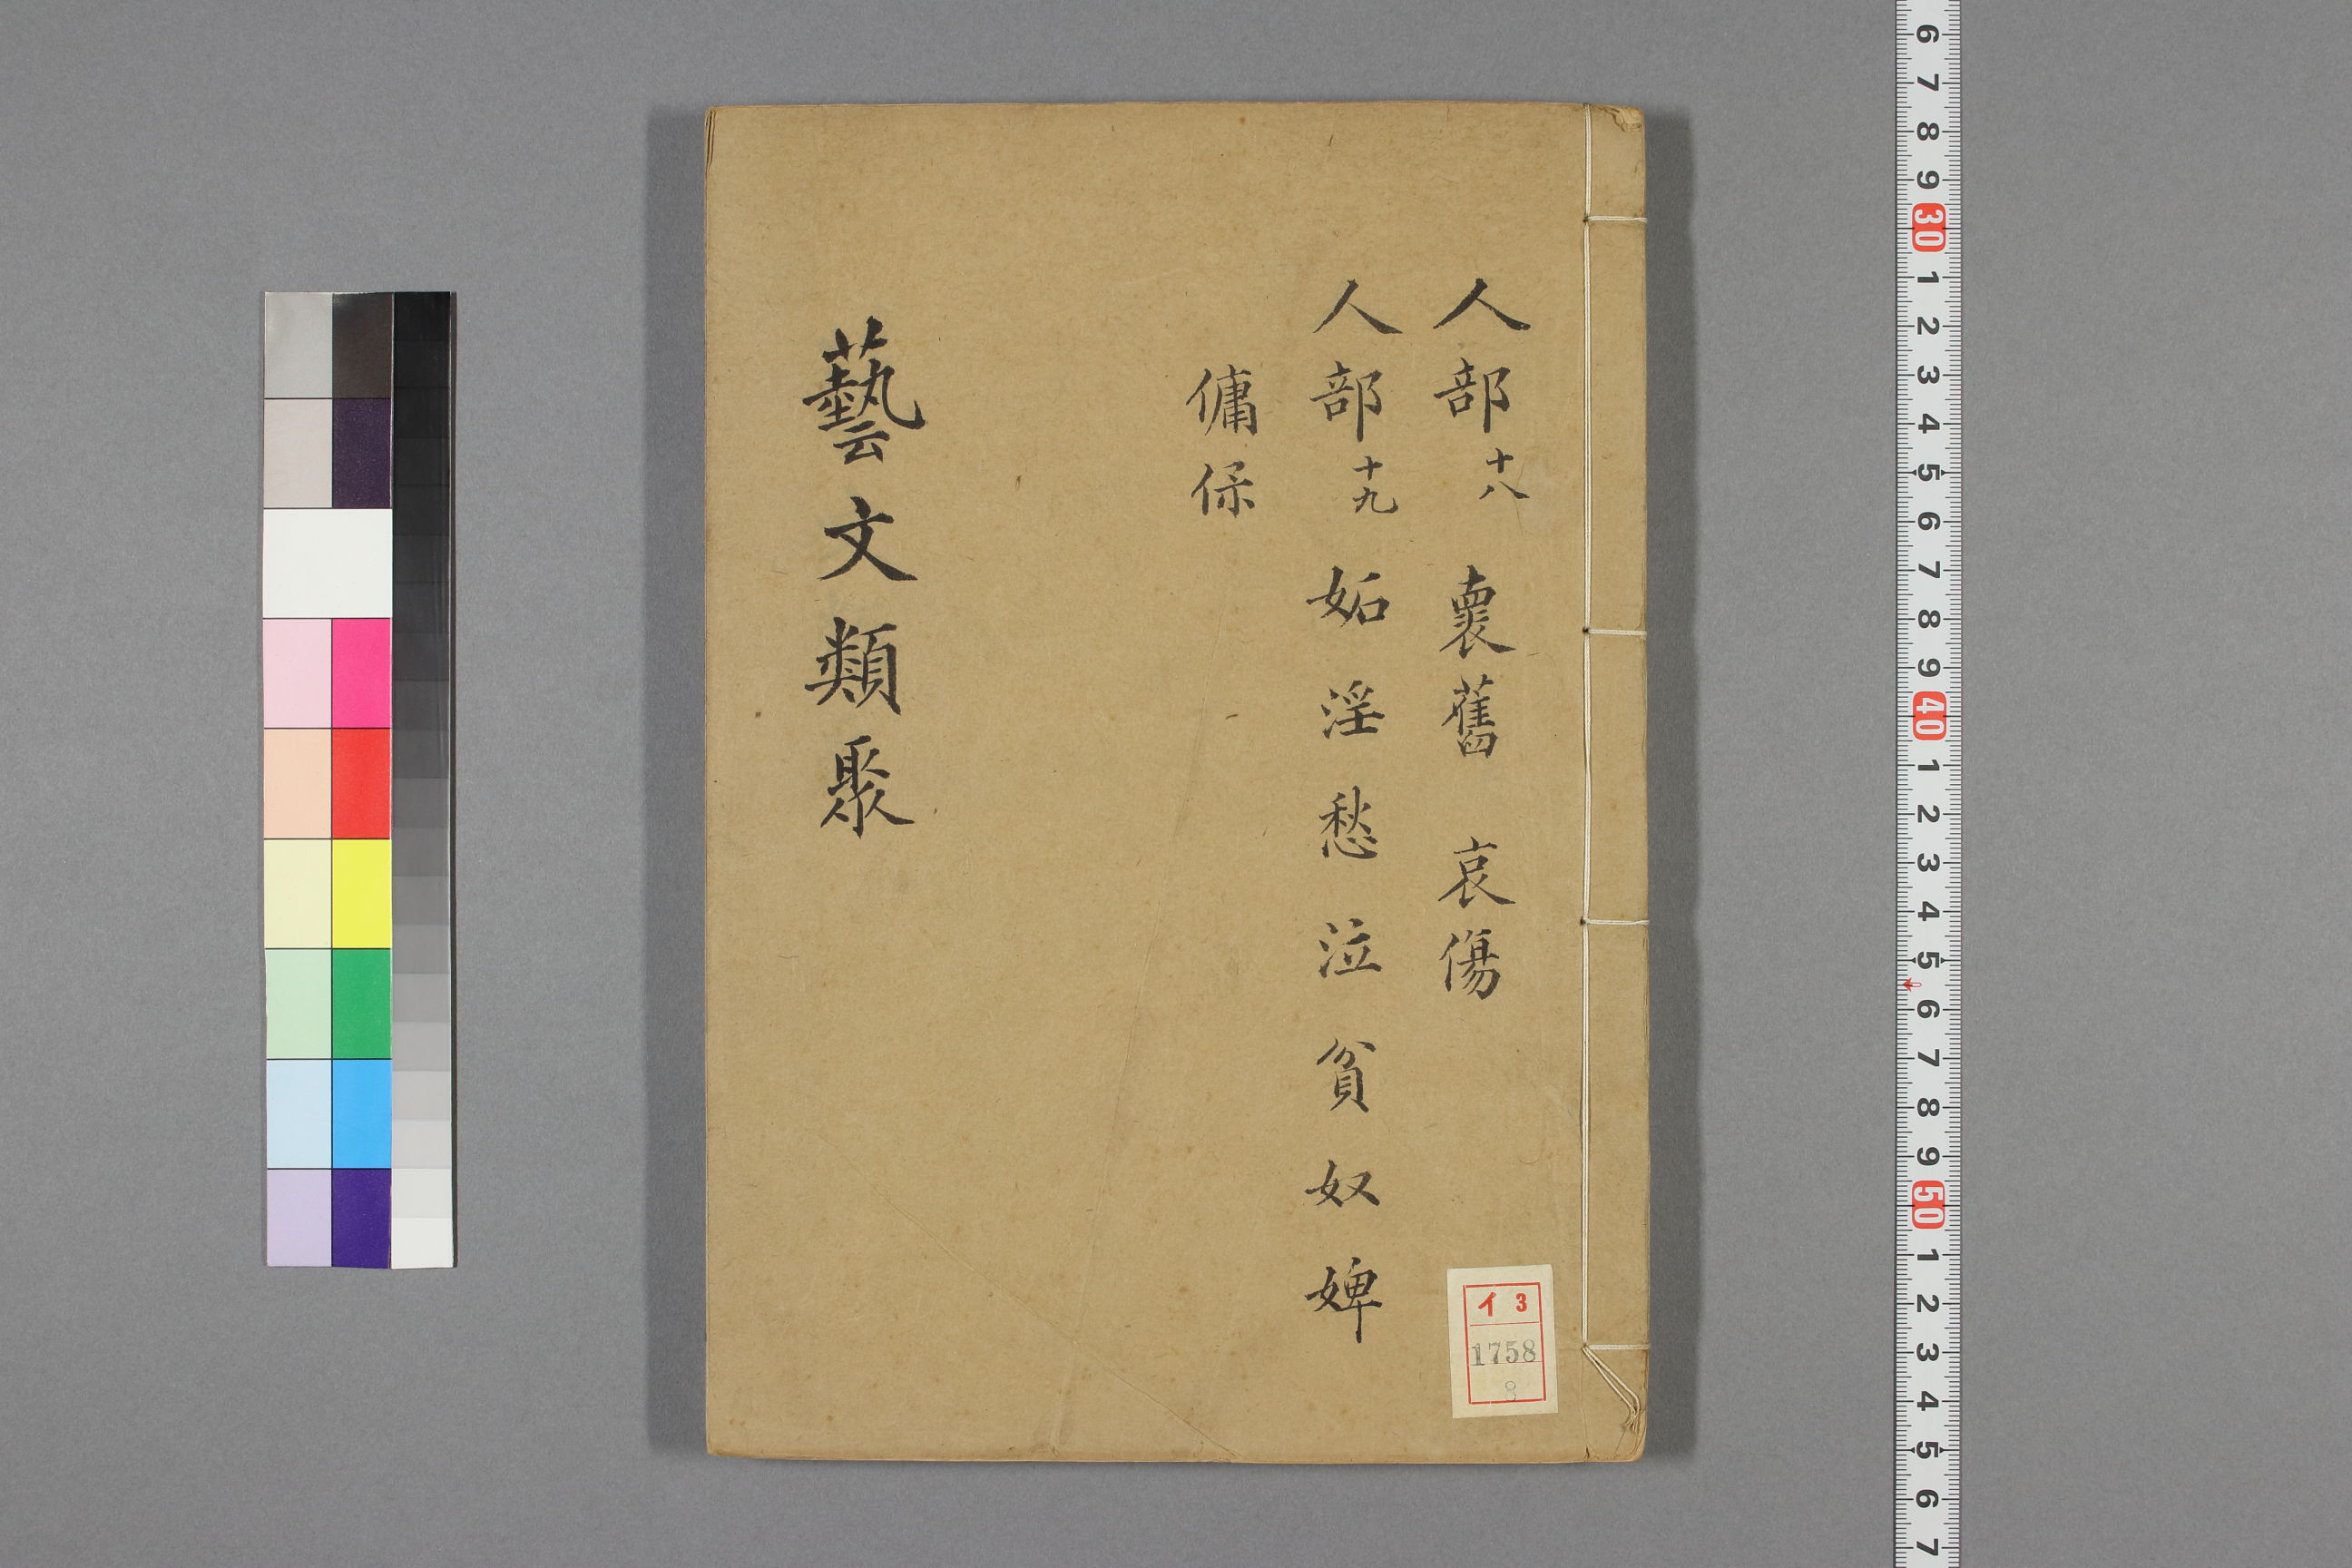 人部十八 褱舊 哀傷
人部十九 妬 淫 愁 泣 貧 奴 婢
傭 保
藝文類聚
イ 3
1758
8
6 7 8 9 30 1 2 3 4 5 6 7 8 9 40 1 2 3 4 5 6 7 8 9 50 1 2 3 4 5 6 7